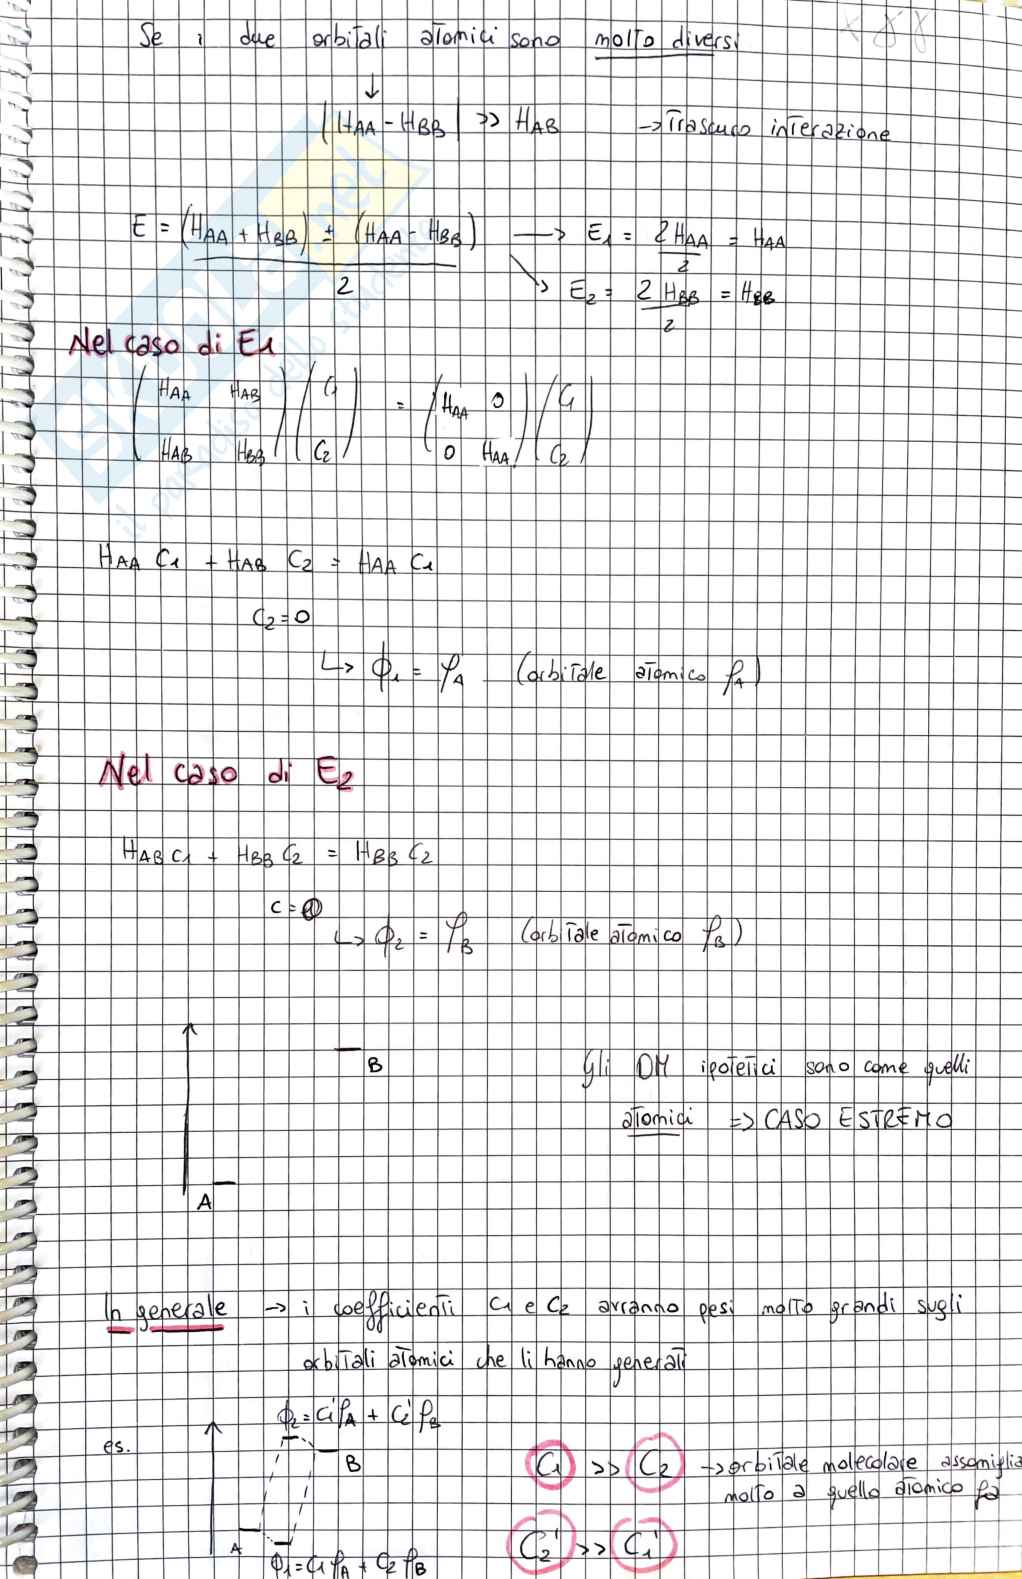 Se i due orbitali atomici sono molto diversi
↓
|HAA - HBB| >> HAB → Trascuro interazione
E = (HAA + HBB) ± (HAA - HBB) / 2 → E1 = 2HAA / 2 = HAA
↘ E2 = 2HBB / 2 = HBB
Nel caso di E1
(HAA HAB) (C1) = (HAA 0) (C1)
(HAB HBB) (C2) (0 HAA) (C2)
HAA C1 + HAB C2 = HAA C1
C2 = 0
↳ ϕ1 = φA (orbitale atomico φA)
Nel caso di E2
HAB C1 + HBB C2 = HBB C2
C = 0
↳ ϕ2 = φB (orbitale atomico φB)
B
Gli OM ipotetici sono come quelli
atomici => CASO ESTREMO
A
In generale → i coefficienti C1 e C2 avranno pesi molto grandi sugli
orbitali atomici che li hanno generati
ϕ2 = C1' φA + C2' φB
es.
B
C1 >> C2 → orbitale molecolare assomiglia
molto a quello atomico φa
A
C2' >> C1'
ϕ1 = C1 φA + C2 φB
SKUOLA.net
il paradiso dello studente